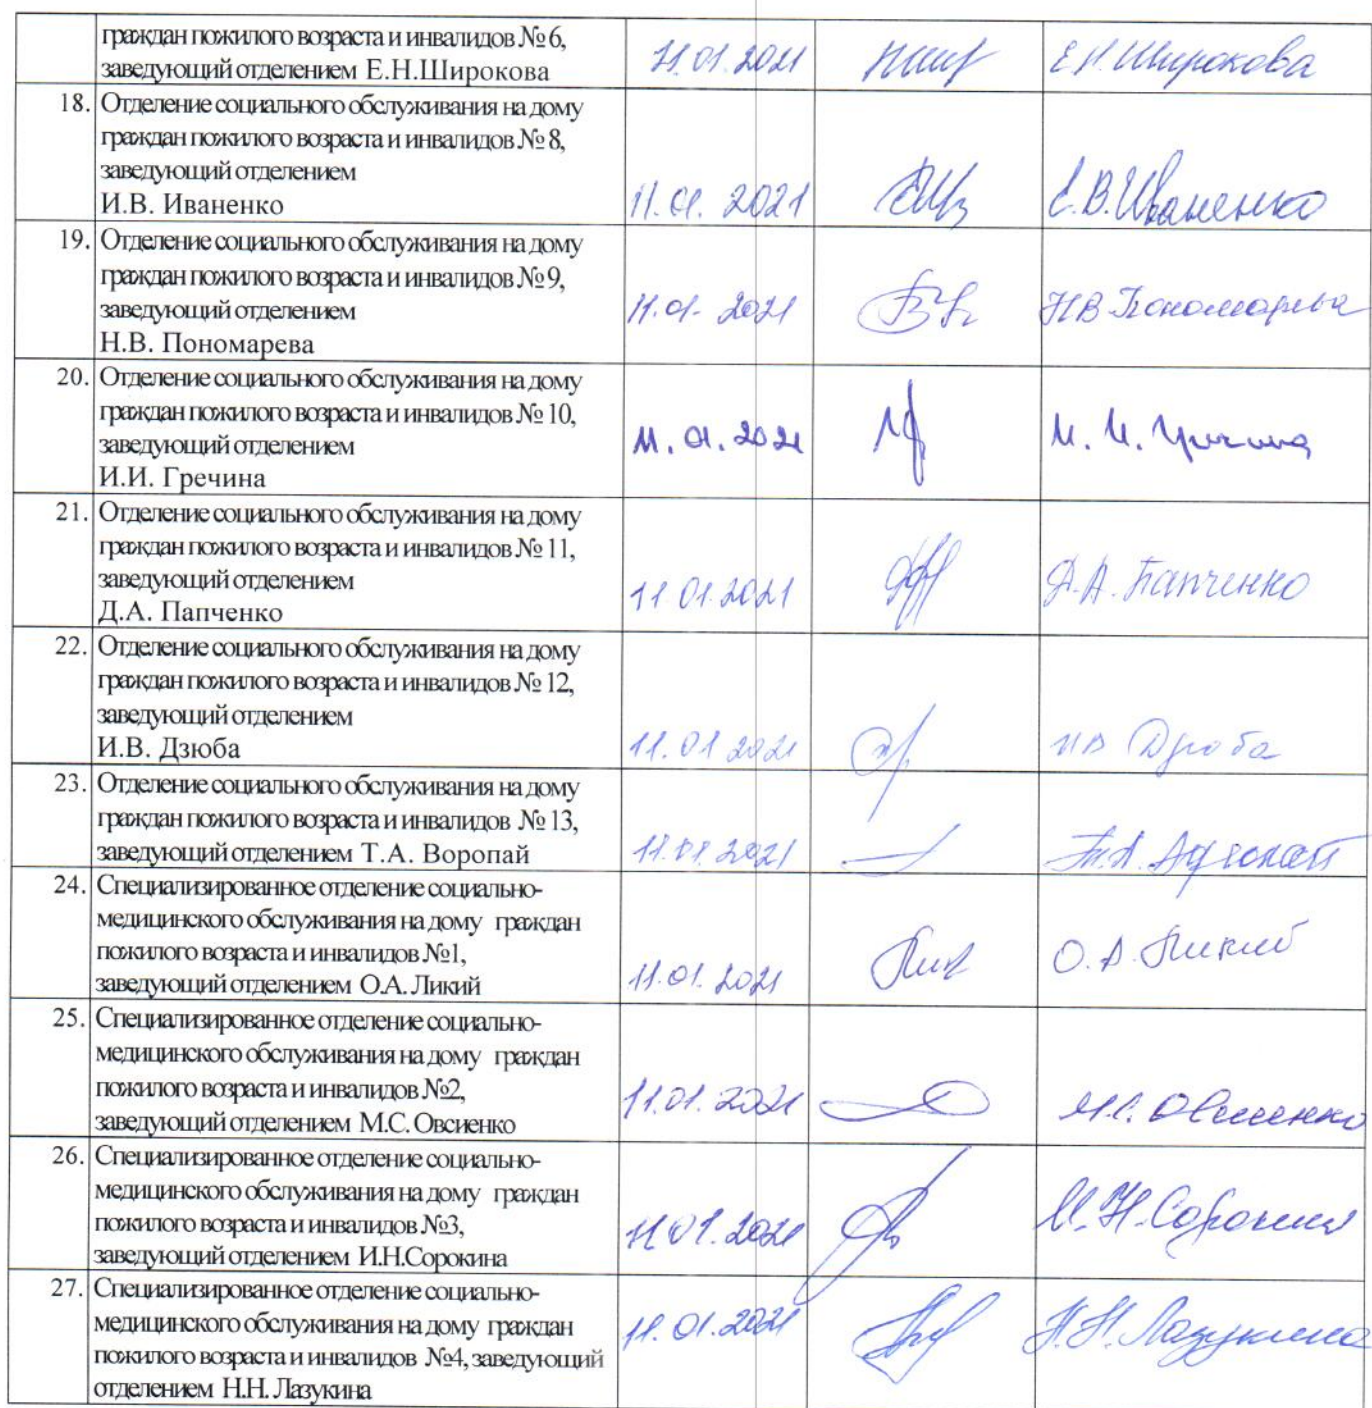 граждан пожилого возраста и инвалидов № 6,
заведующий отделением Е.Н.Широкова
11.01.2021
Е.Н. Широкова
18. Отделение социального обслуживания на дому
граждан пожилого возраста и инвалидов № 8,
заведующий отделением
И.В. Иваненко
11.01.2021
Е.В. Иваненко
19. Отделение социального обслуживания на дому
граждан пожилого возраста и инвалидов № 9,
заведующий отделением
Н.В. Пономарева
11.01.2021
Н.В. Пономарева
20. Отделение социального обслуживания на дому
граждан пожилого возраста и инвалидов № 10,
заведующий отделением
И.И. Гречина
11.01.2021
И.И. Гречина
21. Отделение социального обслуживания на дому
граждан пожилого возраста и инвалидов № 11,
заведующий отделением
Д.А. Папченко
11.01.2021
Д.А. Папченко
22. Отделение социального обслуживания на дому
граждан пожилого возраста и инвалидов № 12,
заведующий отделением
И.В. Дзюба
11.01.2021
ИВ
23. Отделение социального обслуживания на дому
граждан пожилого возраста и инвалидов № 13,
заведующий отделением Т.А. Воропай
11.01.2021
Т.А.
24. Специализированное отделение социально-
медицинского обслуживания на дому граждан
пожилого возраста и инвалидов №1,
заведующий отделением О.А. Ликий
11.01.2021
О.А. Ликий
25. Специализированное отделение социально-
медицинского обслуживания на дому граждан
пожилого возраста и инвалидов №2,
заведующий отделением М.С. Овсиенко
11.01.2021
М.С. Овсиенко
26. Специализированное отделение социально-
медицинского обслуживания на дому граждан
пожилого возраста и инвалидов №3,
заведующий отделением И.Н.Сорокина
11.01.2021
И.Н. Сорокина
27. Специализированное отделение социально-
медицинского обслуживания на дому граждан
пожилого возраста и инвалидов №4, заведующий
отделением Н.Н. Лазукина
11.01.2021
Н.Н. Лазукина